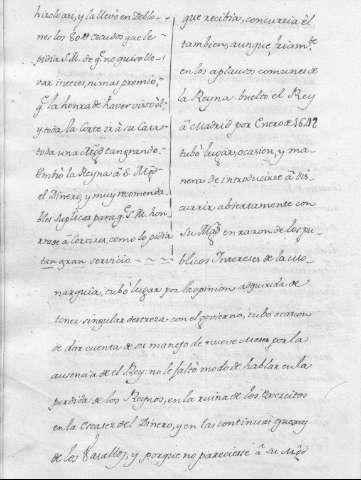 y la llevó en Doblo-
nes los 80@ escudos que le
pidia S.M. de q.e no quiso lle-
var interes, ni mas premio,
q.e la honra de haver visto él
y toda la Corte ir à su Casa
toda una Mag.d tan grande.
Embió la Reyna à S. Mag.d
el Dinero, y muy recomenda-
bles suplicas para q.e S.M. hon-
rrase à Cortizos, como lo pidia
tan gran servicio
que recibia, concurria èl
tambien, aunque friam.te
en los aplausos comunes de
la Reyna. buelto el Rey
à Madrid por Enero de 1642
tubo lugar, ocasion, y ma-
neras de introducirse à dis-
currir abiertamente con
su Mag.d en razon de los pu-
blicos Intereses de la Mo-
narquia, tubo lugar por la opinion adquirida de
tener singular destreza con el govierno, tubo ocasion
de dar cuenta de su manejo de nueve meses por la
ausencia de el Rey: no le faltò modo de hablar en la
perdida de los Reynos, en la ruina de los Exercitos
en la escasez del Dinero, y en las continuas quexas
de los Vasallos, y porque no pareciese à su Mag.d